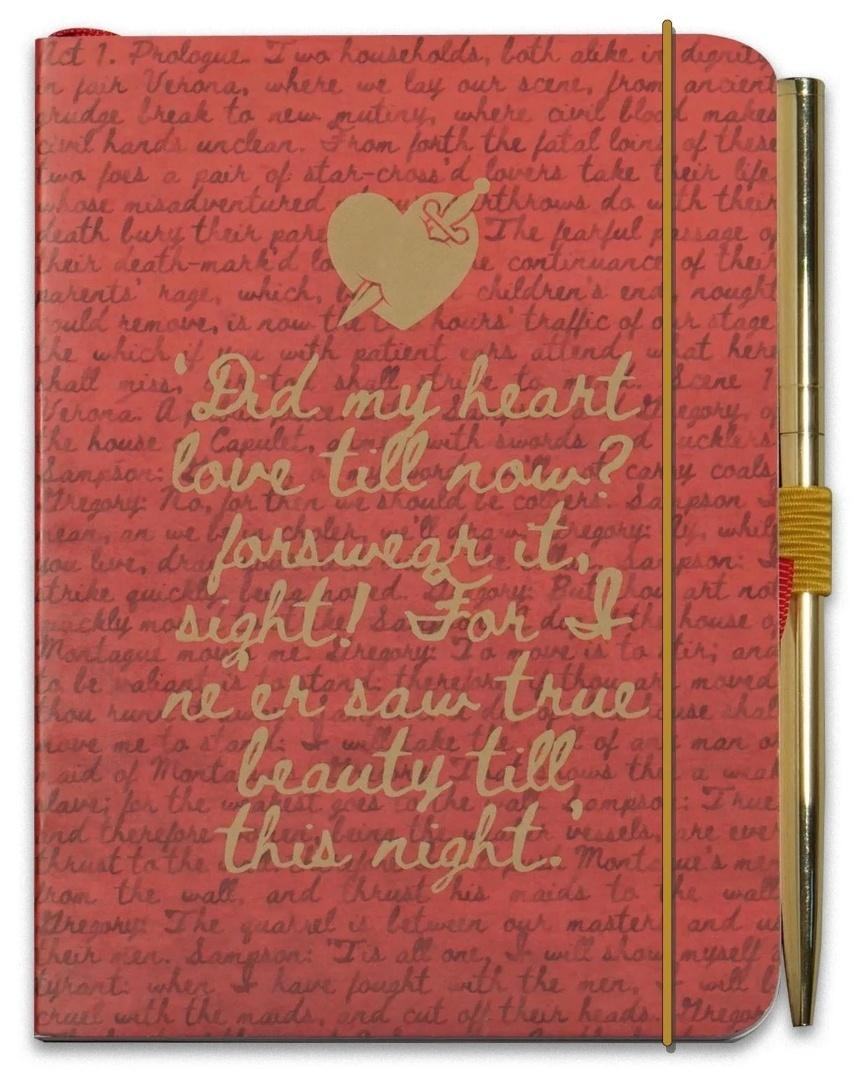 Act 1. Prologue. Two households, both alike in dignity
in fair Verona, where we lay our scene, from ancient
grudge break to new mutiny, where civil blood makes
civil hands unclean. From forth the fatal loins of these
two foes a pair of star-cross'd lovers take their life
whose misadventured rthrows do with their
death bury their pare The fearful passage of
their death-mark'd lo e continuance of their
parents' rage, which, children's end, nought
could remove, is now the hours' traffic of our stage
the which if you with patient ears attend, what here
shall miss, shall strive to Scene 1
'Did my heart
love till now?
forswear it,
sight! For I
ne'er saw true
beauty till
this night.'
Verona. A Gregory, of
the house Capulet, with swords
Sampson: carry coals
Gregory: No, for then we should be Sampson I
mean, an we be in choler, we'll draw. Gregory: Ay, while
you live, Sampson: I
strike quickly being moved. Gregory: But thou art not
quickly house of
Montague moves me. Gregory: To move is to stir; and
to be valiant is to stand: therefore, thou art moved
thou shall
move me to stand: I will take the of any man or
maid of That shows thee a weak
slave; for the weakest goes to the wall. Sampson: True
and therefore women, being the vessels, are ever
thrust to the Montague's men
from the wall, and thrust his maids to the wall
Gregory: The quarrel is between our masters and us
their men. Sampson: 'Tis all one, I will show myself a
tyrant: when I have fought with the men, I will b
cruel with the maids, and cut off their heads. Gregor